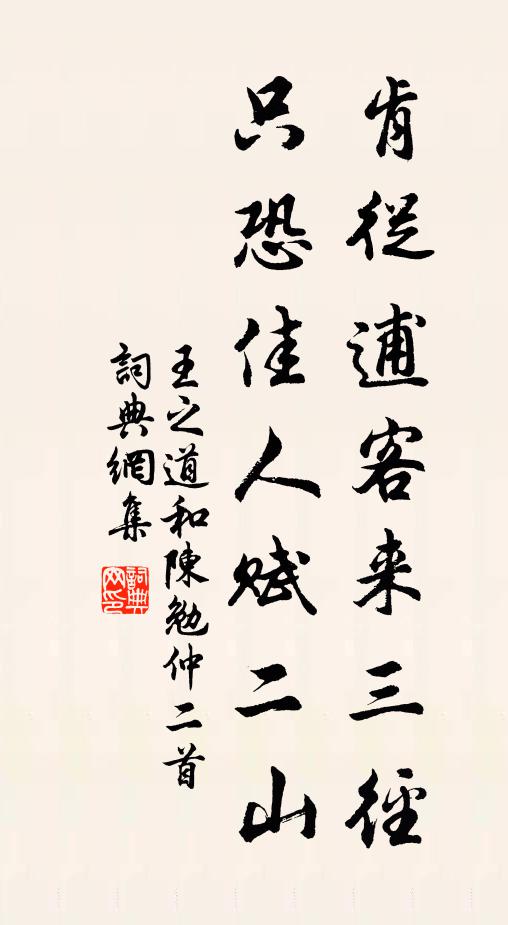 肯從逋客来三徑
只恐佳人赋二山
王之道和陳勉仲二首
詞典網集
詞典網印